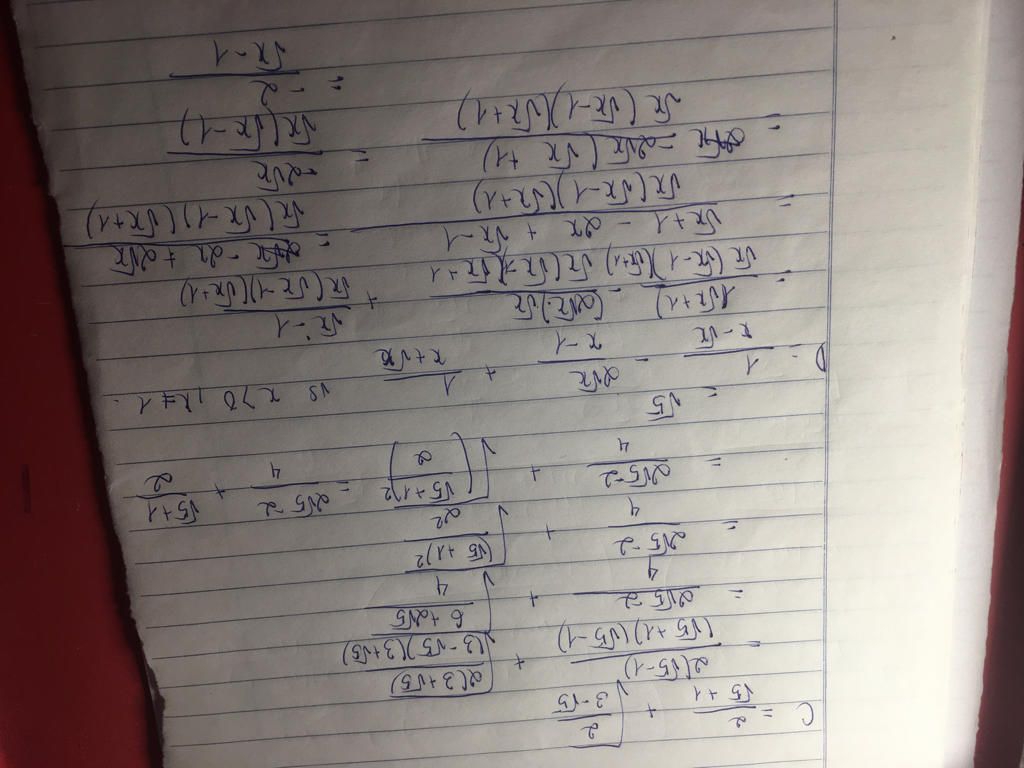 C = \frac{2}{\sqrt{5}+1} + \sqrt{\frac{2}{3-\sqrt{5}}}
= \frac{2(\sqrt{5}-1)}{(\sqrt{5}+1)(\sqrt{5}-1)} + \sqrt{\frac{2(3+\sqrt{5})}{(3-\sqrt{5})(3+\sqrt{5})}}
= \frac{2\sqrt{5}-2}{4} + \sqrt{\frac{6+2\sqrt{5}}{4}}
= \frac{2\sqrt{5}-2}{4} + \sqrt{\frac{(\sqrt{5}+1)^2}{2^2}}
= \frac{2\sqrt{5}-2}{4} + \sqrt{\left(\frac{\sqrt{5}+1}{2}\right)^2} = \frac{2\sqrt{5}-2}{4} + \frac{\sqrt{5}+1}{2}
= \sqrt{5}
D = \frac{1}{x-\sqrt{x}} - \frac{2\sqrt{x}}{x-1} + \frac{1}{x+\sqrt{x}} vs x > 0, x ≠ 1.
= \frac{1\sqrt{x}+1)}{\sqrt{x}(\sqrt{x}-1)(\sqrt{x}+1)} - \frac{(2\sqrt{x})\sqrt{x}}{\sqrt{x}(\sqrt{x}-1)(\sqrt{x}+1} + \frac{\sqrt{x}-1}{\sqrt{x}(\sqrt{x}-1)(\sqrt{x}+1)}
= \frac{\sqrt{x}+1-2x+\sqrt{x}-1}{\sqrt{x}(\sqrt{x}-1)(\sqrt{x}+1)} = \frac{-2x+2\sqrt{x}}{\sqrt{x}(\sqrt{x}-1)(\sqrt{x}+1)}
= \frac{-2\sqrt{x}(\sqrt{x}+1)}{\sqrt{x}(\sqrt{x}-1)(\sqrt{x}+1)} = \frac{-2\sqrt{x}}{\sqrt{x}(\sqrt{x}-1)}
= \frac{-2}{\sqrt{x}-1}